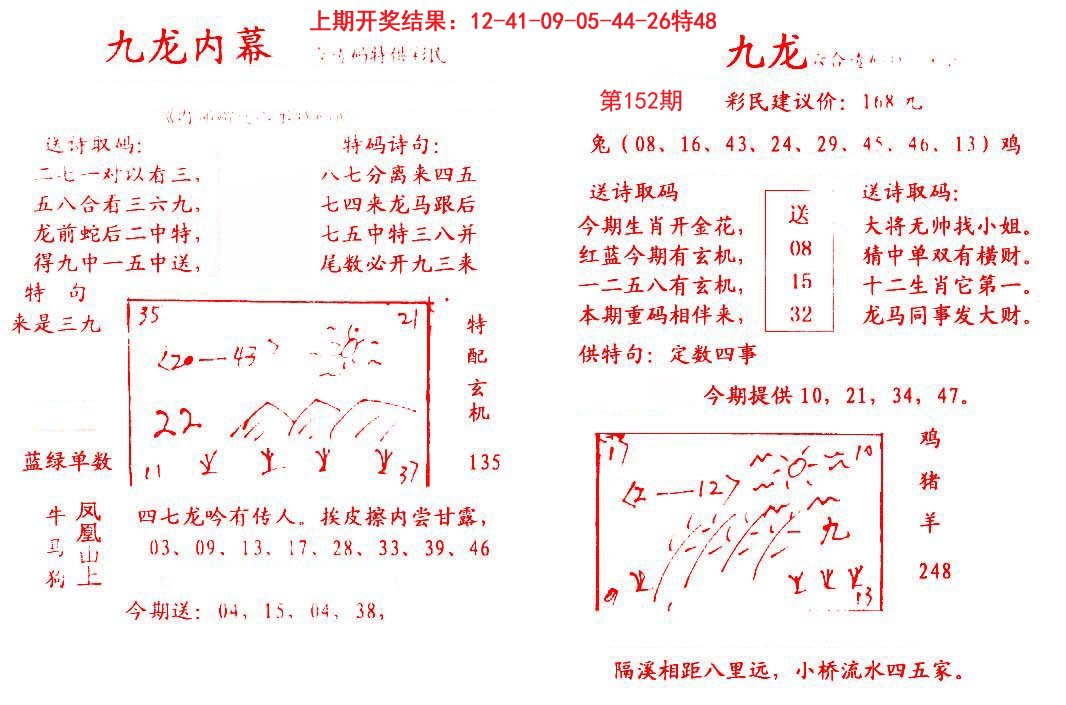 上期开奖结果：12-41-09-05-44-26特48
九龙内幕
送诗取码：
二七一对以看三，
五八合看三六九，
龙前蛇后二中特，
得九中一五中送，
特码诗句：
八七分离来四五
七四来龙马跟后
七五中特三八并
尾数必开九三来
特 句
来是三九
35
21
<20—43>
22
11
37
特配玄机
135
蓝绿单数
牛马狗
凤凰山上
四七龙吟有传人。挨皮擦内尝甘露，
03、09、13、17、28、33、39、46
今期送：04，15，04，38，
九龙
第152期
彩民建议价：168
兔（08、16、43、24、29、45、46、13）鸡
送诗取码
今期生肖开金花，
红蓝今期有玄机，
一二五八有玄机，
本期重码相伴来，
送
08
15
32
送诗取码：
大将无帅找小姐。
猜中单双有横财。
十二生肖它第一。
龙马同事发大财。
供特句：定数四事
今期提供10，21，34，47。
10
<2—12>
九
13
鸡
猪
羊
248
隔溪相距八里远，小桥流水四五家。